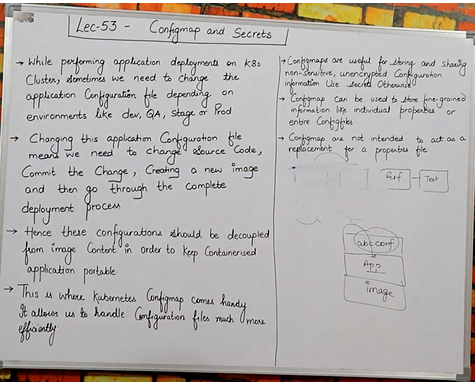 Lec-53 - Configmap and Secrets
→ While performing application deployments on K8s
Cluster, Sometimes we need to change the
application Configuration file depending on
environments like dev, QA, Stage or Prod.
→ Changing this application Configuration file
means we need to change Source Code,
Commit the Change, Creating a new image
and then go through the complete
deployment process.
→ Hence these configurations should be decoupled
from image Content in order to keep Containerised
application portable
→ This is where Kubernetes Configmap comes handy
It allows us to handle Configuration files much more
efficiently
→ Configmaps are useful for storing and sharing
non-sensitive, unencrypted Configuration
information Use Secrets Otherwise
→ Configmap can be used to store fine-grained
information like individual properties or
entire Configfiles
→ Configmap are not intended to act as a
replacement for a properties file
Test
abc conf
App
image